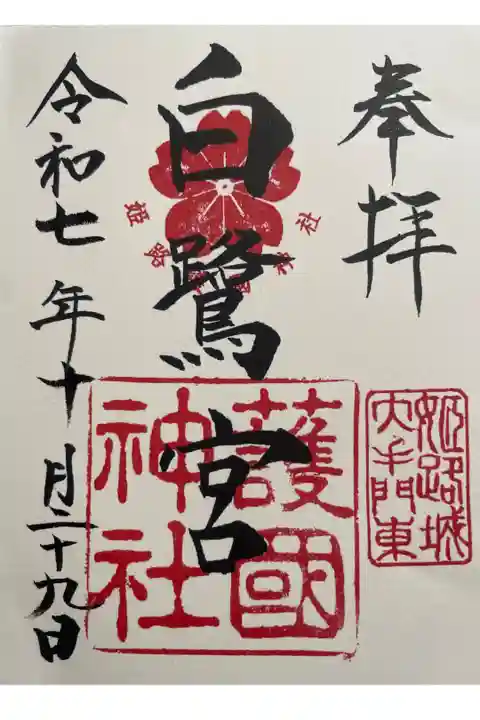 奉拝
姫路城
大手門東
白鷺宮
姫路護國神社
護國
神社
令和七年十月二十九日